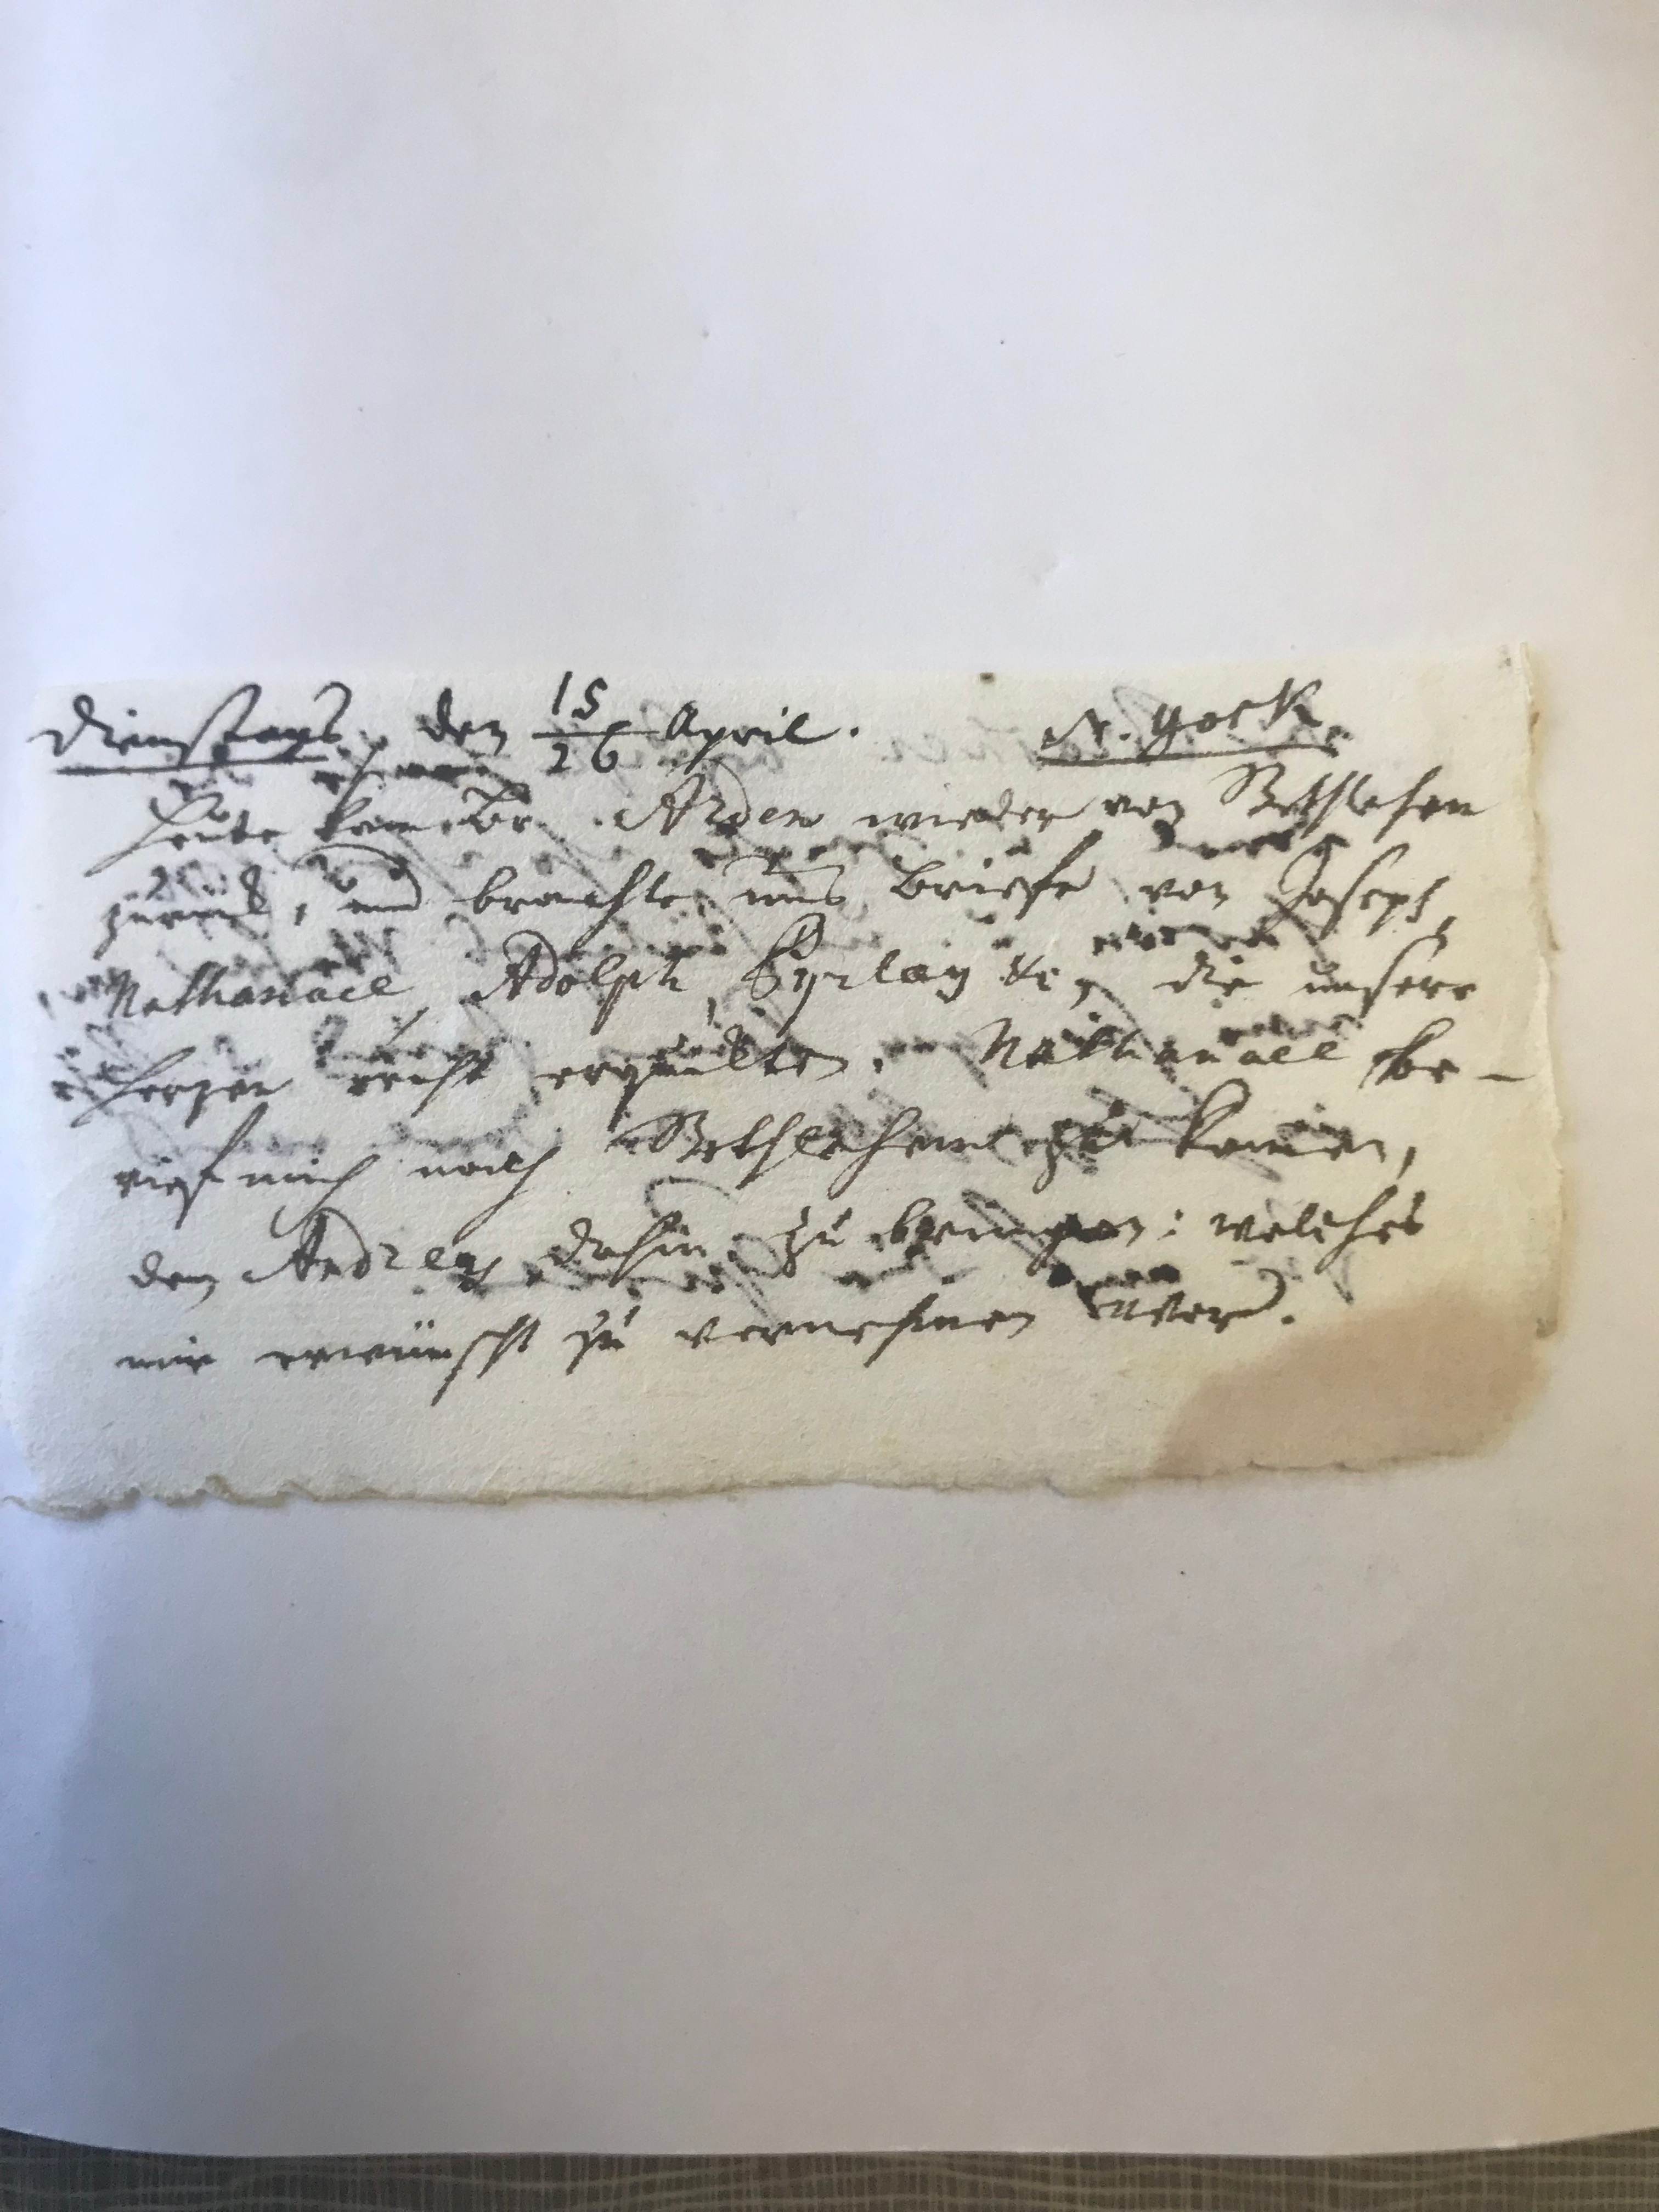 Dienstags, den 15/26 April. N. York
Heute kam Br. Arden wieder von Bethlehem
zurück, und brachte uns Briefe von Joseph,
Nathanael, Adolph, Pyrlay &c, die unsere
Herzen recht erquikten. Nathanael be-
rief mich nach Bethlehem zu kom̅en,
den Andreas dahin zu bringen: welches
mir erwünscht zu vernehmen war.